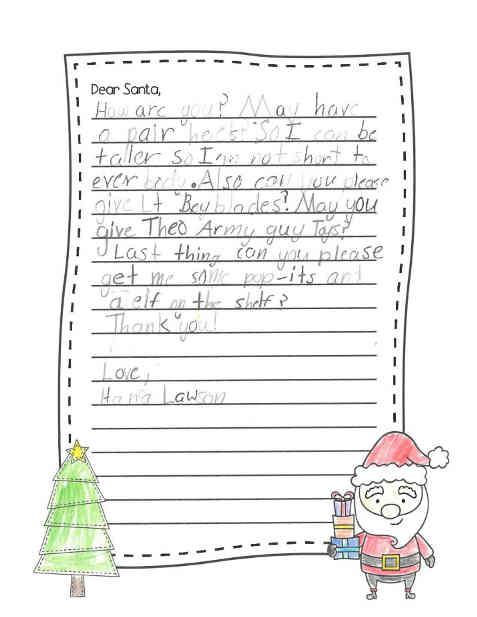 Dear Santa,
How are you? May have
a pair heels? So I can be
taller so I'm not short to
everbody. Also can you please
give Lt Beyblades? May you
give Theo Army guy Toys?
Last thing can you please
get me some pop-its and
a elf on the shelf?
Thank you!
Love,
Hanna Lawson